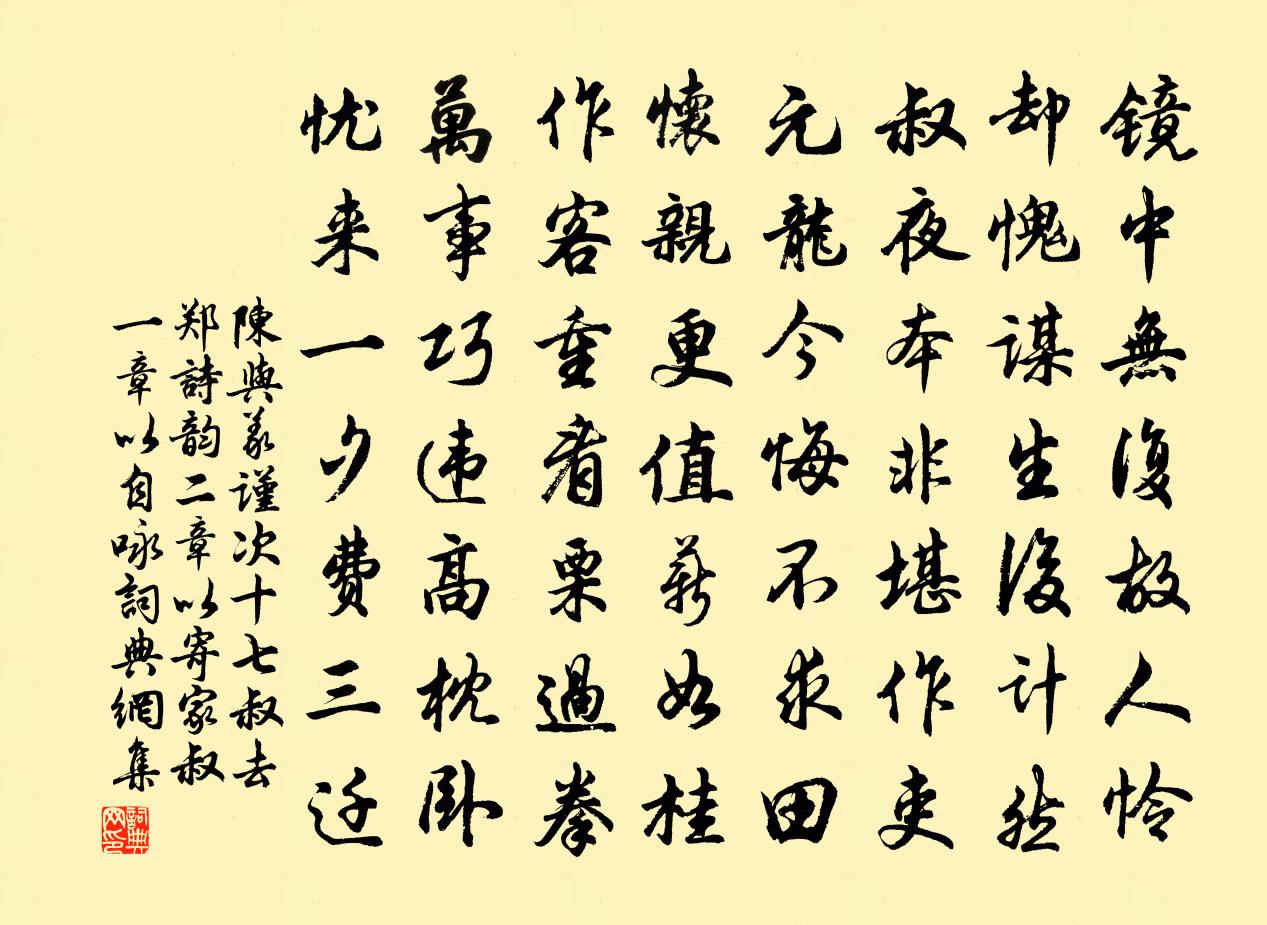 镜中無復故人怜
却愧谋生後计然
叔夜本非堪作吏
元龍今悔不求田
懷親更值薪如桂
作客重看栗過拳
萬事巧违高枕卧
忧来一夕费三迁
陳與義謹次十七叔去
郑詩韵二章以寄家叔
一章以自咏詞典網集
詞典
网印